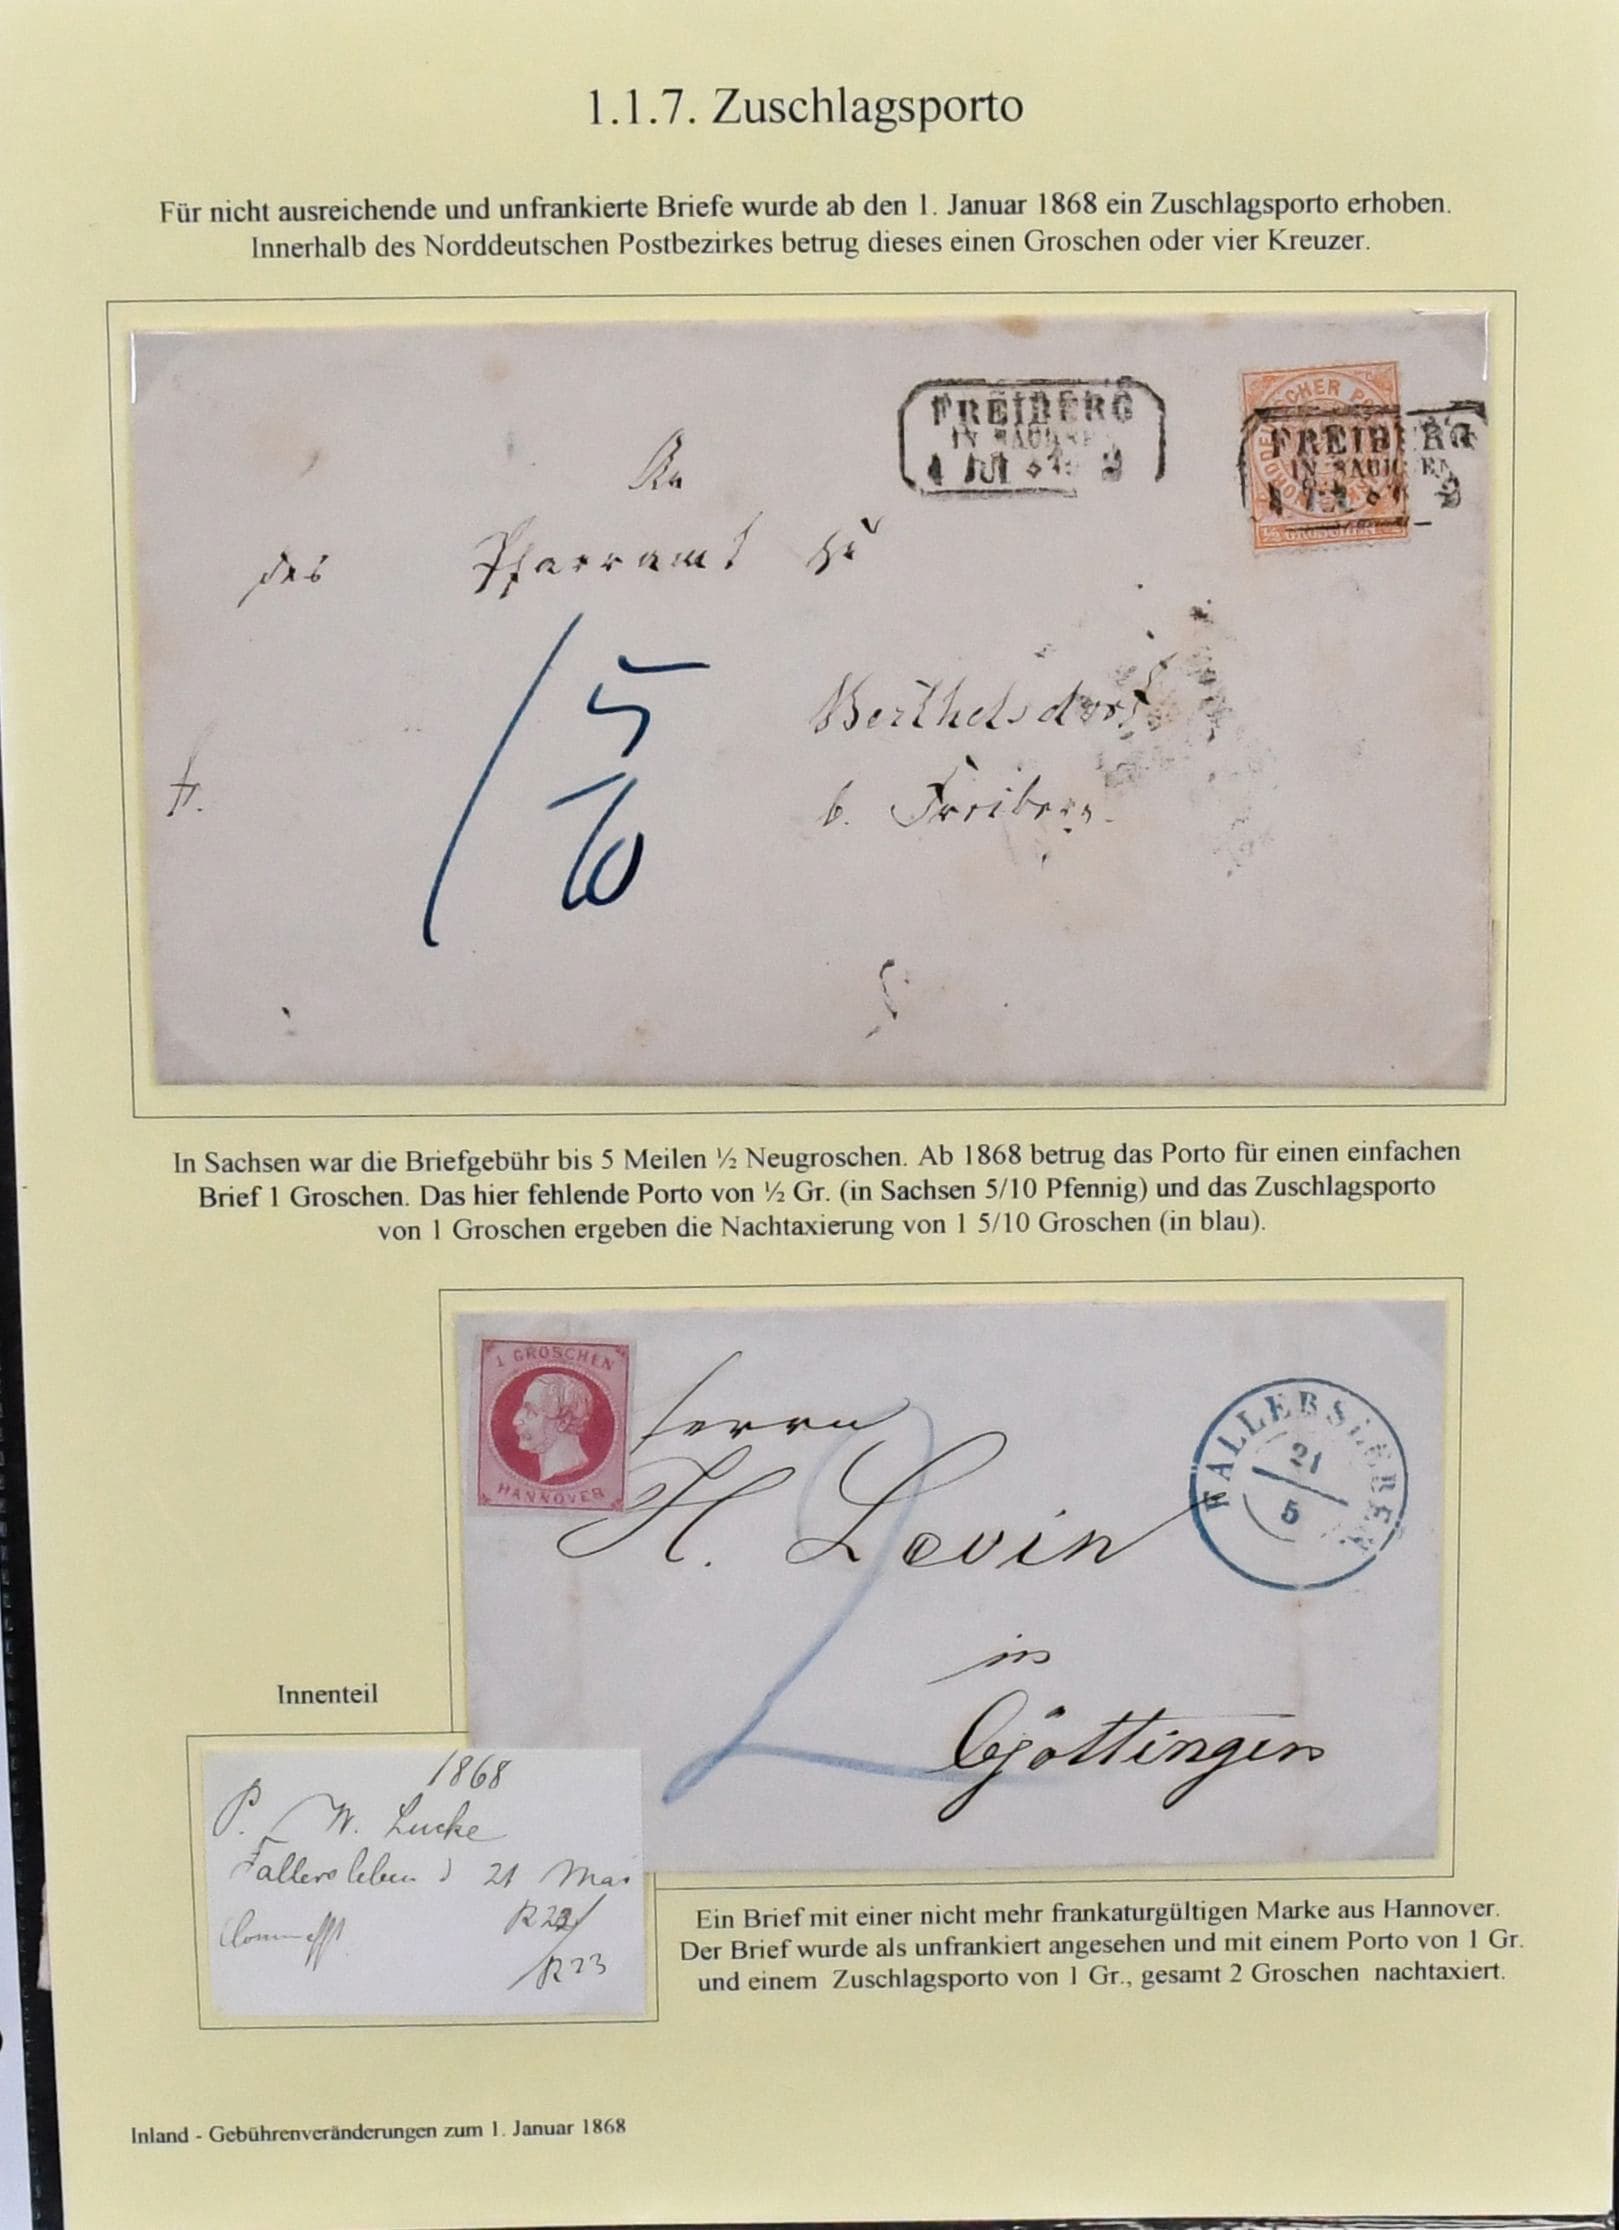 1.1.7. Zuschlagsporto
Für nicht ausreichende und unfrankierte Briefe wurde ab den 1. Januar 1868 ein Zuschlagsporto erhoben.
Innerhalb des Norddeutschen Postbezirkes betrug dieses einen Groschen oder vier Kreuzer.
FREIBERG
IN SACHSEN
FREIBERG
IN SACHSEN
GROSCHEN
An
das Pfarramt zu
1 5/10
Berthelsdorf
b. Freiberg.
In Sachsen war die Briefgebühr bis 5 Meilen ½ Neugroschen. Ab 1868 betrug das Porto für einen einfachen
Brief 1 Groschen. Das hier fehlende Porto von ½ Gr. (in Sachsen 5/10 Pfennig) und das Zuschlagsporto
von 1 Groschen ergeben die Nachtaxierung von 1 5/10 Groschen (in blau).
1 GROSCHEN
HANNOVER
Herrn
H. Levin
2
in
Göttingen
FALLERSLEBEN
21
5
Innenteil
1868
P. W. Lucke
Fallersleben d 21 Mai
R 23
Ein Brief mit einer nicht mehr frankaturgültigen Marke aus Hannover.
Der Brief wurde als unfrankiert angesehen und mit einem Porto von 1 Gr.
und einem Zuschlagsporto von 1 Gr., gesamt 2 Groschen nachtaxiert.
Inland - Gebührenveränderungen zum 1. Januar 1868